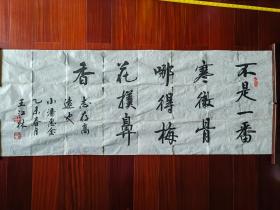 不是一番
寒徹骨
哪得梅
花撲鼻
香
志存高
遠
小潘惠念
乙未春月
王